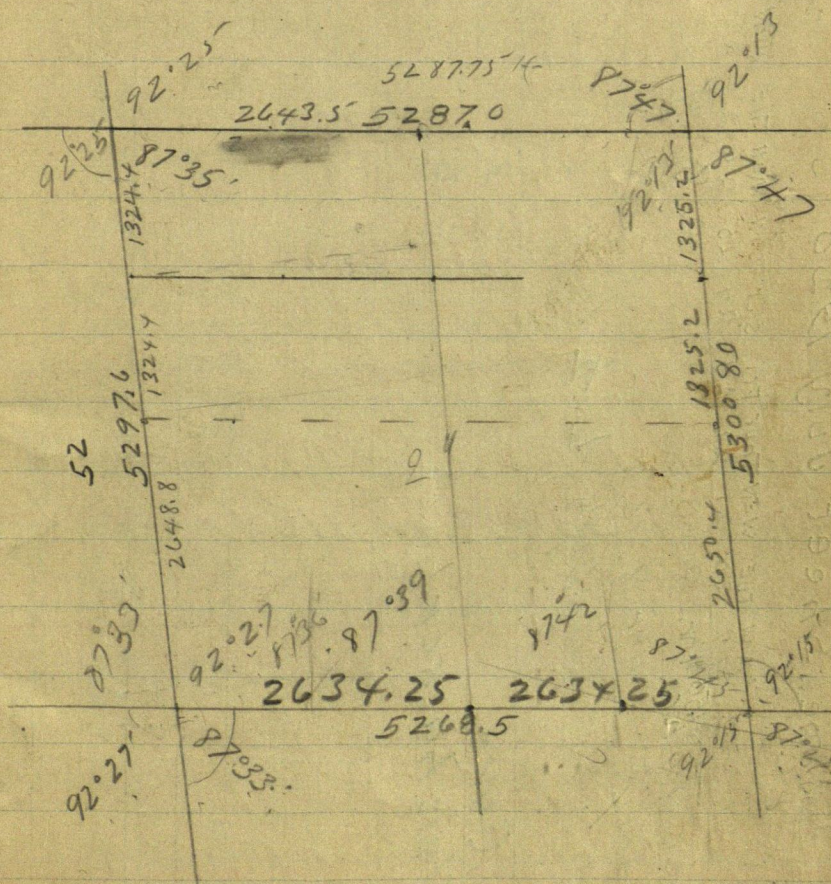 92°25
5287.75
87°47
92°13
2643.5 5287.0
92°25
87°35
92°13
87°47
1324.4
1325.2
1324.4
1325.2
52
5297.6
5300.80
9
2648.8
2650.4
87°33
92°27
87°36
87°39
87°42
87°45
92°15
2634.25 2634.25
5268.5
92°27
87°33
92°15